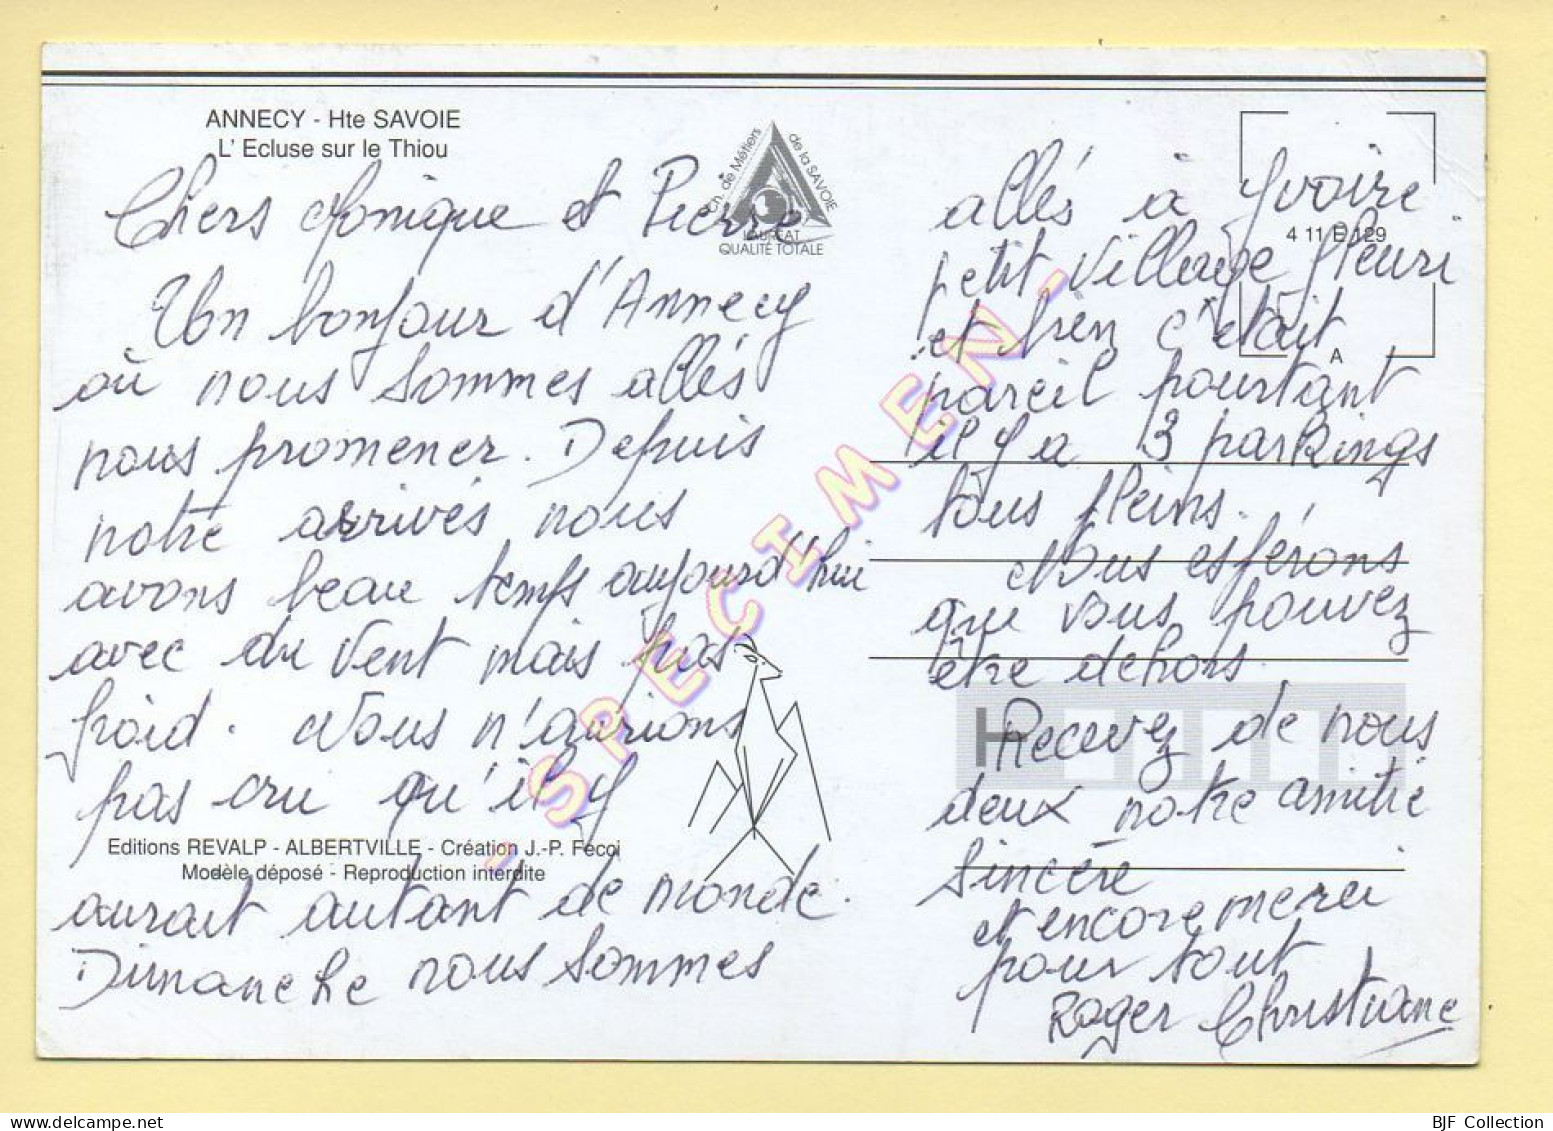 ANNECY - Hte SAVOIE
L' Ecluse sur le Thiou
Ch. de Métiers de la SAVOIE
LAUREAT
QUALITÉ TOTALE
Chers Monique et Pierre
Un bonjour d'Annecy
où nous sommes allés
nous promener. Depuis
notre arrivés nous
avons beau temps aujourd'hui
avec du vent mais pas
froid. Nous n'aurions
pas cru qu'il y
Editions REVALP - ALBERTVILLE - Création J.-P. Fecci
Modèle déposé - Reproduction interdite
aurait autant de monde.
Dimanche nous sommes
4 11 E 129
A
allés à Yvoire
petit village fleuri
et bien c'était
pareil pourtant
il y a 3 parkings
tous pleins.
Nous espérons
que vous pouvez
être dehors.
Recevez de nous
deux notre amitié
sincère
et encore merci
pour tout
Roger Christiane
- SPECIMEN -
BJF Collection